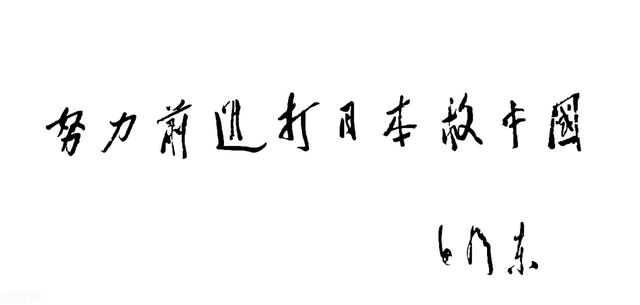 努力前進打日本救中國
毛澤東